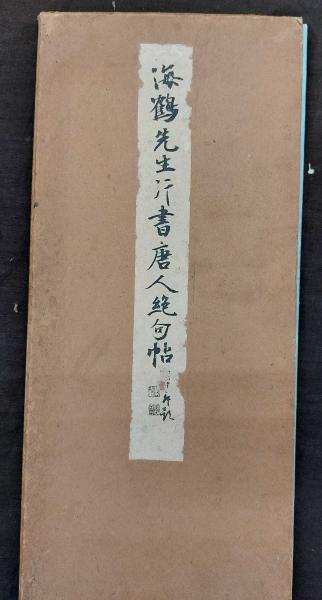 海鶴先生行書唐人絶句帖
題